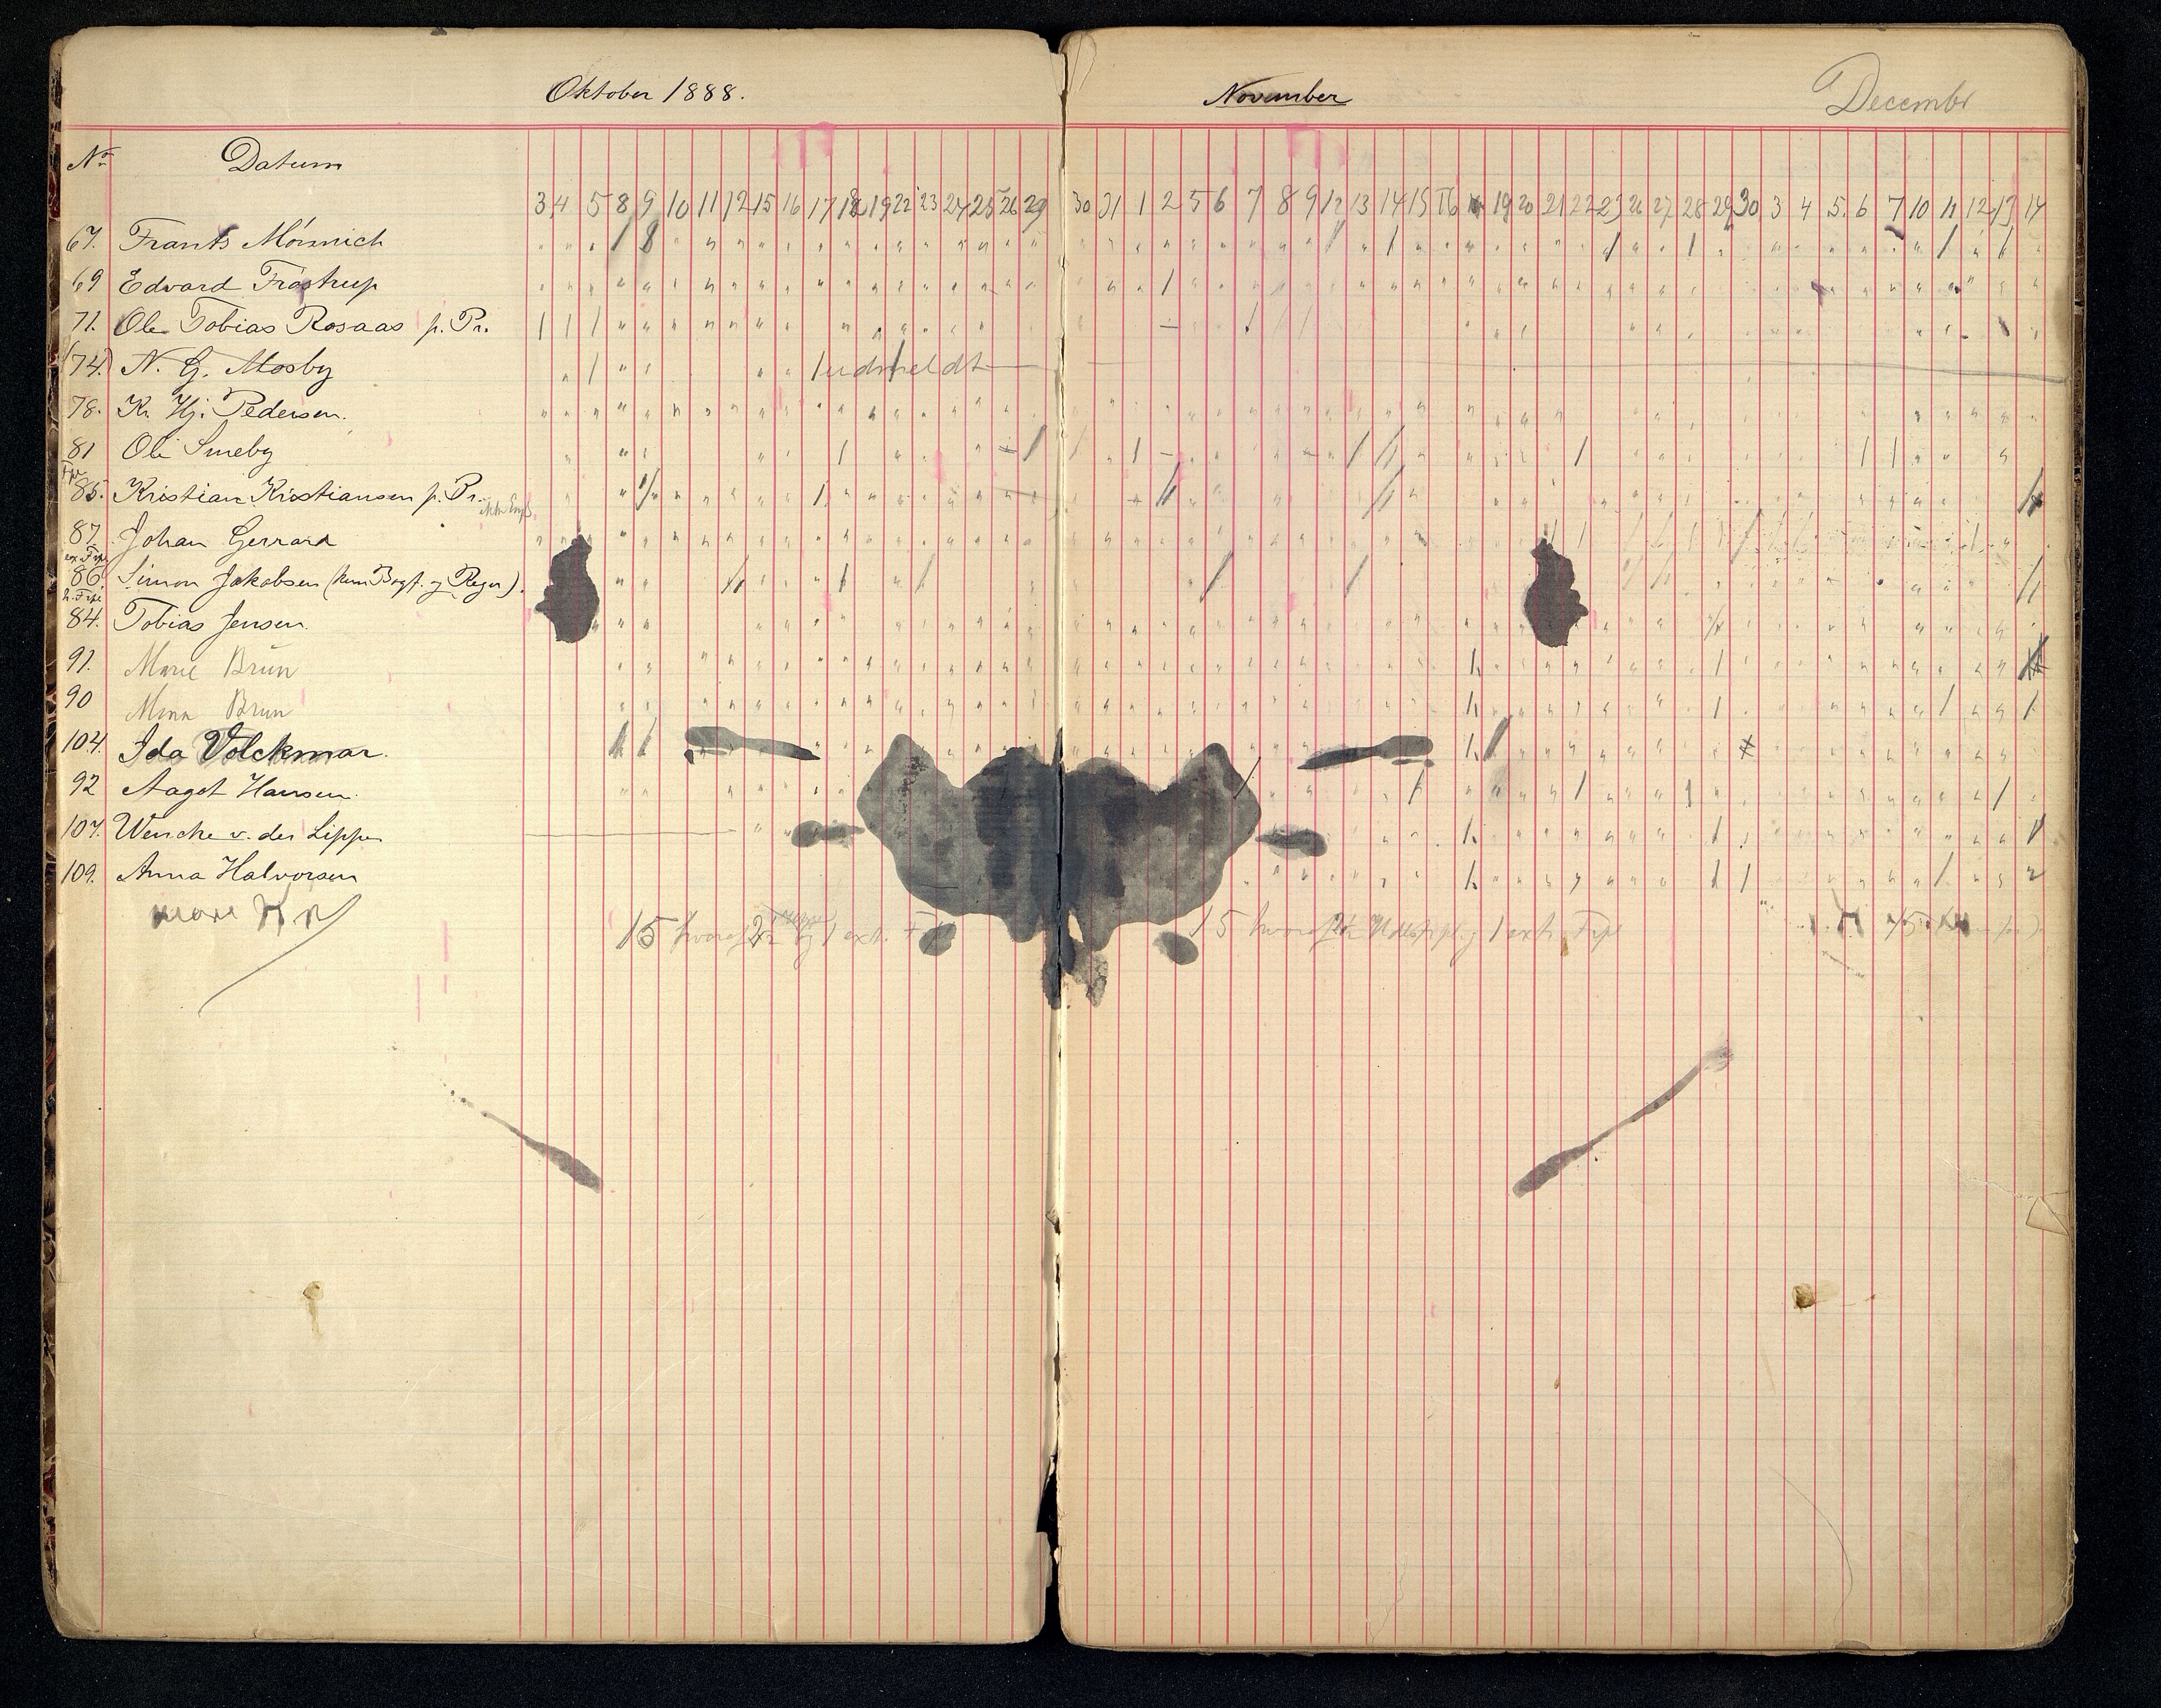 Oktober 1888.
November
Decembr
No Datum
3 4 5 8 9 10 11 12 15 16 17 18 19 22 23 24 25 26 29 30 31 1 2 5 6 7 8 9 12 13 14 15 16 19 20 21 22 23 26 27 28 29 30 3 4 5. 6 7 10 11 12 13 14
67. Frants Mönnich
69 Edvard Fröstrup
71. Ole Tobias Rosaas p. Pr.
(74.) N. G. Mosby udmeldt
78. Kr. Hj. Pedersen.
81 Ole Smeby
85. Kristian Kristiansen p. Pr.
87. Johan Gerrard
86. Simon Jakobsen (kun Bogf. og Regn).
84. Tobias Jensen.
91. Marie Brun
90 Mina Brun
104. Ida Volckmar.
92 Aagot Hansen.
107. Wencke v. der Lippe
109. Anna Halvorsen
15 hvoraf 2 og 1 ext. 15 hvoraf og 1 ext. Fripl